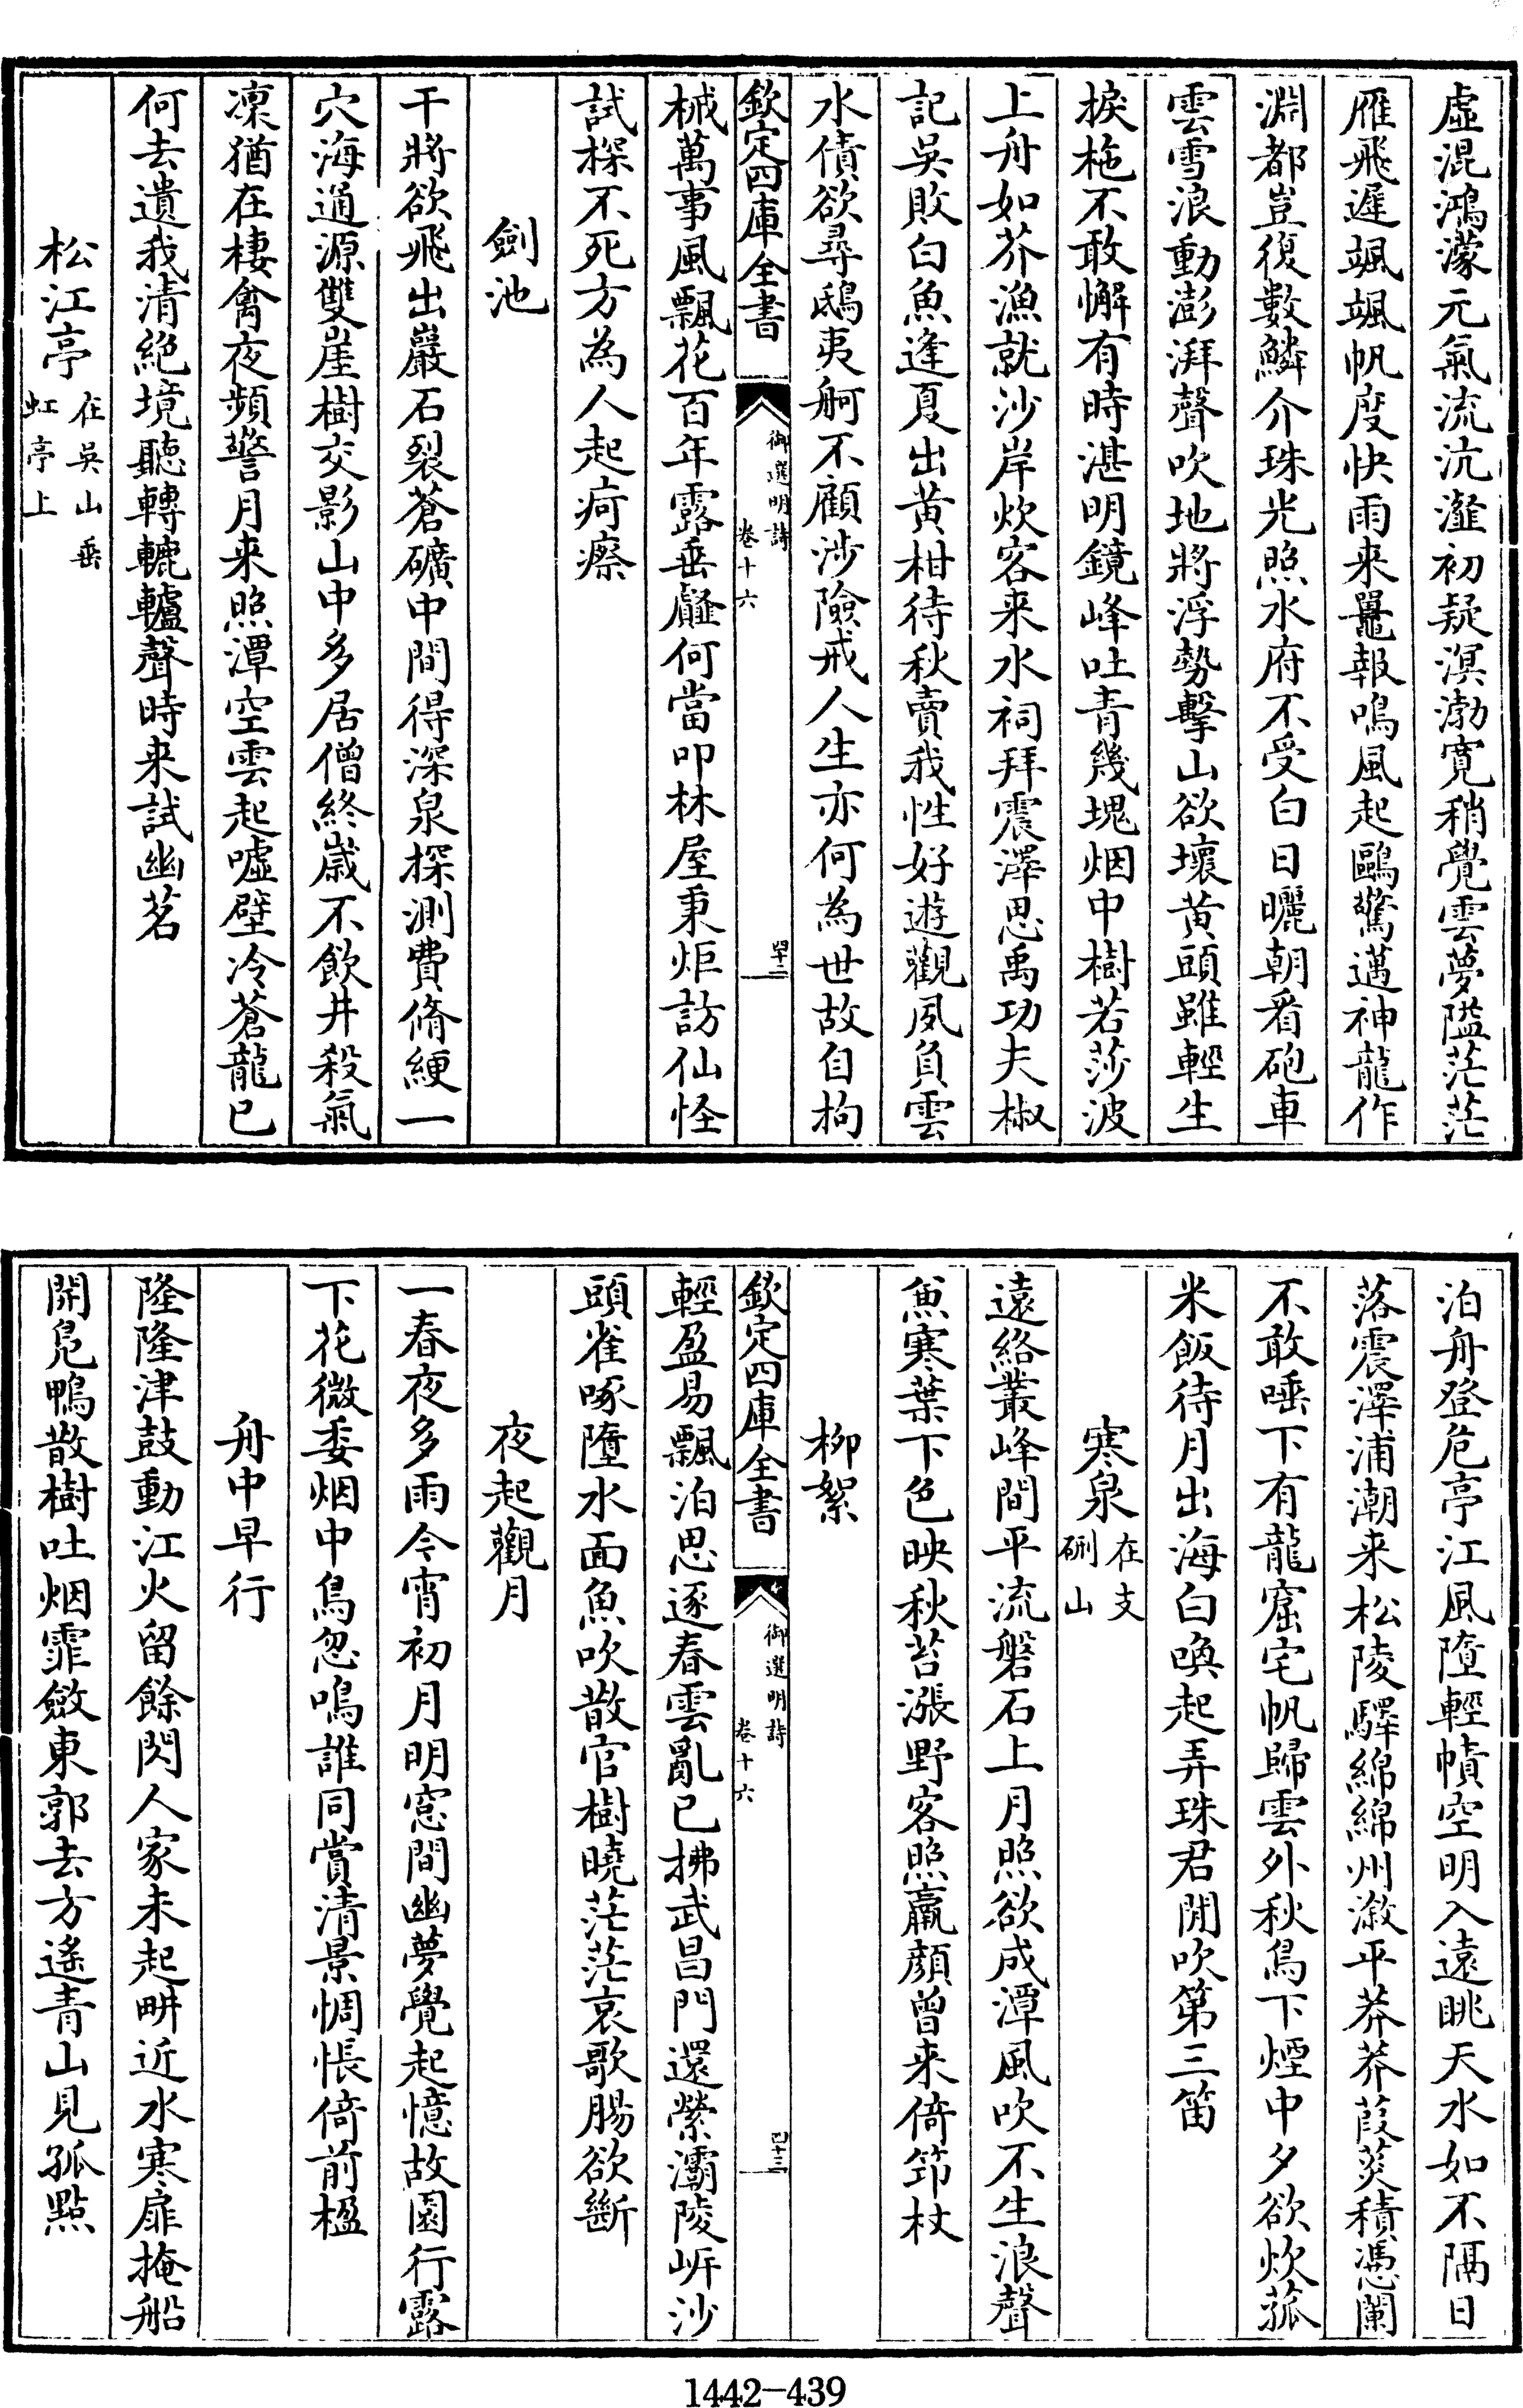 虛混鴻濛元氣流沆瀣初疑溟渤寛稍覺雲夢隘茫茫
雁飛遲颯颯帆度快雨来鼉報鳴風起鷗驚邁神龍作
淵都豈復數鱗介珠光照水府不受白日曬朝看砲車
雲雪浪動澎湃聲吹地將浮勢擊山欲壞黄頭雖輕生
捩柂不敢懈有時湛明鏡峰吐青幾塊烟中樹若莎波
上舟如芥漁就沙岸炊客来水祠拜震澤思禹功夫椒
記吳敗白魚逢夏出黄柑待秋賣我性好遊觀夙負雲
水債欲尋鴟夷舸不顧涉險戒人生亦何為世故自拘
欽定四庫全書
御選明詩
卷十六
四十二
械萬事風飄花百年露垂薤何當叩林屋秉炬訪仙怪
試探不死方為人起疴瘵
劍池
干將欲飛出巖石裂蒼礦中間得深泉探測費脩綆一
穴海通源雙崖樹交影山中多居僧終歲不飲井殺氣
凜猶在棲禽夜頻警月来照潭空雲起噓壁冷蒼龍已
何去遺我清絕境聽轉轆轤聲時来試幽茗
松江亭 在吳山垂
虹亭上
泊舟登危亭江風墮輕幘空明入遠眺天水如不隔日
落震澤浦潮来松陵驛綿綿州溆平莽莽葭菼積憑闌
不敢唾下有龍窟宅帆歸雲外秋鳥下煙中夕欲炊菰
米飯待月出海白喚起弄珠君閒吹第三笛
寒泉 在支
硎山
遠絡叢峰間平流磐石上月照欲成潭風吹不生浪聲
魚寒葉下色映秋苔漲野客照羸顔曾来倚筇杖
柳絮
欽定四庫全書
御選明詩
卷十六
四十三
輕盈易飄泊思逐春雲亂已拂武昌門還縈灞陵岍沙
頭雀啄墮水面魚吹散官樹曉茫茫哀歌腸欲斷
夜起觀月
一春夜多雨今宵初月明窓間幽夢覺起憶故園行露
下花微委烟中鳥忽鳴誰同賞清景惆悵倚前楹
舟中早行
隆隆津鼓動江火留餘閃人家未起畊近水寒扉掩船
開鳧鴨散樹吐烟霏斂東郭去方遙青山見孤點
1442-439